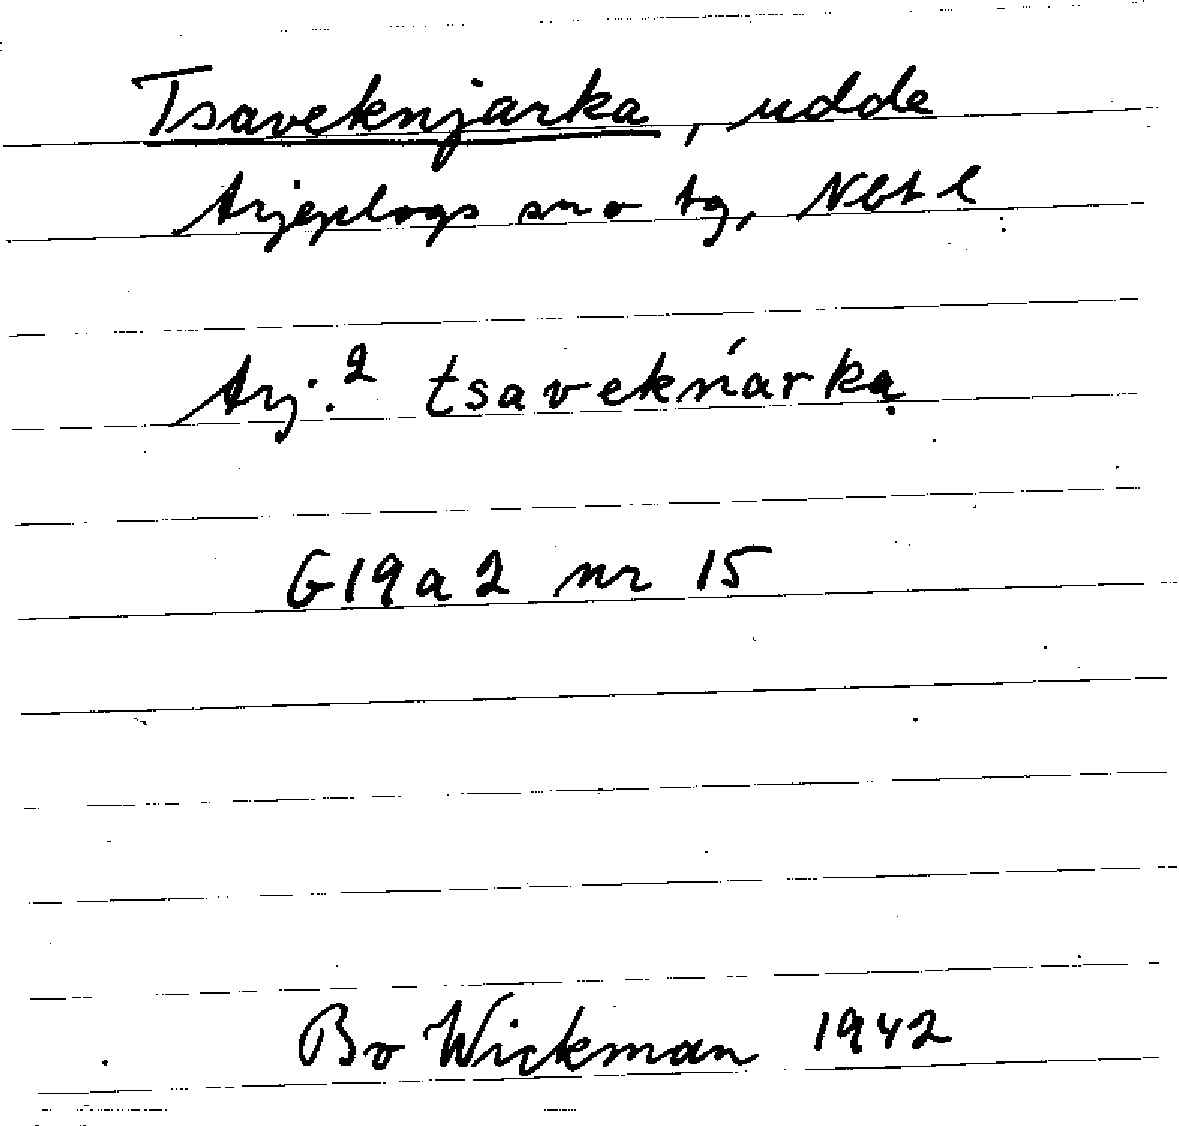 Tsaveknjarka, udde
Arjeplogs sn o tg, Nbt l
Arj.² tsavekńarkạ
G19a2 nr 15
Bo Wickman 1942